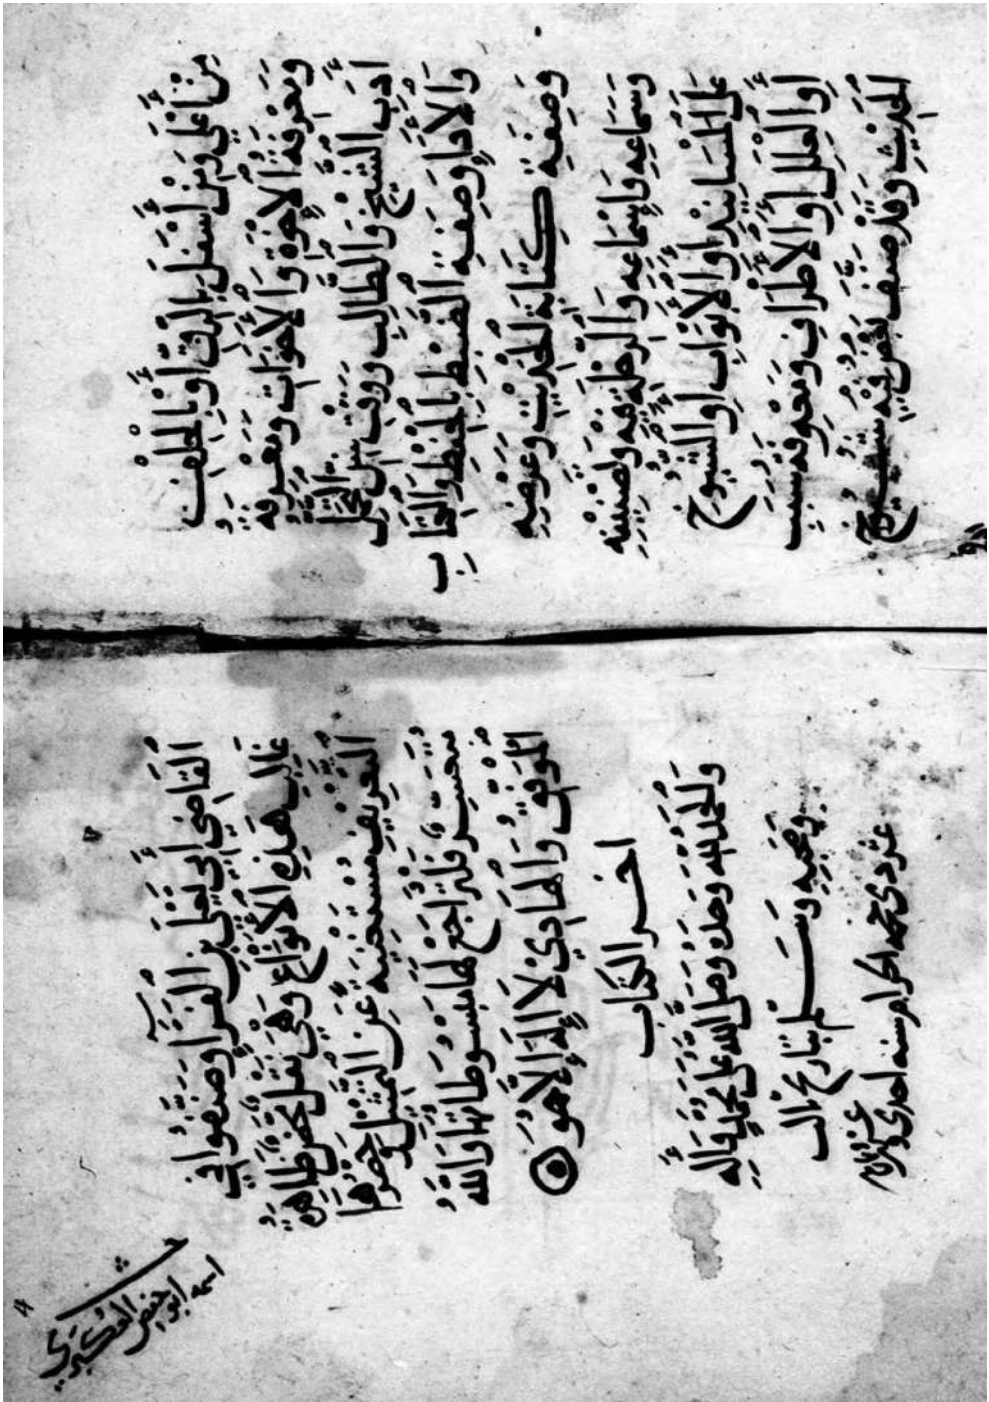 مِنْ أَعْلَى وَمِنْ أَسْفَلَ بِالرِّقِّ أَوْ بِالْحِلْفِ
وَمَعْرِفَةُ الْإِخْوَةِ وَالْأَخَوَاتِ وَمَعْرِفَةُ
أَدَبِ الشَّيْخِ وَالطَّالِبِ وَوَقْتِ سِنِّ التَّحَمُّلِ
وَالْأَدَا وَصِفَةِ الضَّبْطِ بِالْحِفْظِ وَالْكِتَابِ
وَصِفَةِ كِتَابَةِ الْحَدِيْثِ وَعَرْضِهِ
وَسَمَاعِهِ وَإِسْمَاعِهِ وَالرِّحْلَةِ فِيهِ وَتَصْنِيْفِهِ
عَلَى الْمَسَانِيْدِ أَوِ الْأَبْوَابِ أَوِ الشُّيُوْخِ
أَوِ الْعِلَلِ أَوِ الْأَطْرَافِ وَمَعْرِفَةِ سَبَبِ
الْحَدِيْثِ وَقَدْ صَنَّفَ فِيْهِ بَعْضُ شُيُوْخِ
الْقَاضِي أَبِي يَعْلَى بْنِ الْفَرَّآ وَصَنَّفُوا فِي
غَالِبِ هَذِهِ الْأَنْوَاعِ وَهِيَ نَقْلٌ مَحْضٌ ظَاهِرَةُ
التَّعْرِيْفِ مُسْتَغْنِيَةٌ عَنِ التَّمْثِيْلِ وَحَصْرُهَا
مُتَعَسِّرٌ فَلْتُرَاجَعْ لَهَا مَبْسُوطَاتُهَا وَاللهُ
الْمُوَفِّقُ وَالْهَادِيْ لَا إِلَهَ إِلَّا هُوَ
اخر الكتاب
وَالْحَمْدُ لله وَحْدَهُ وَصَلَّى اللهُ عَلَى مُحَمَّدٍ وَآلِهِ
وَصَحْبِهِ وَسَلَّمْ بتاريخ ثالث
عشر ذي حجة الحرام سنه احدى
اسمه
ابو حفص
العُكْبَرِي